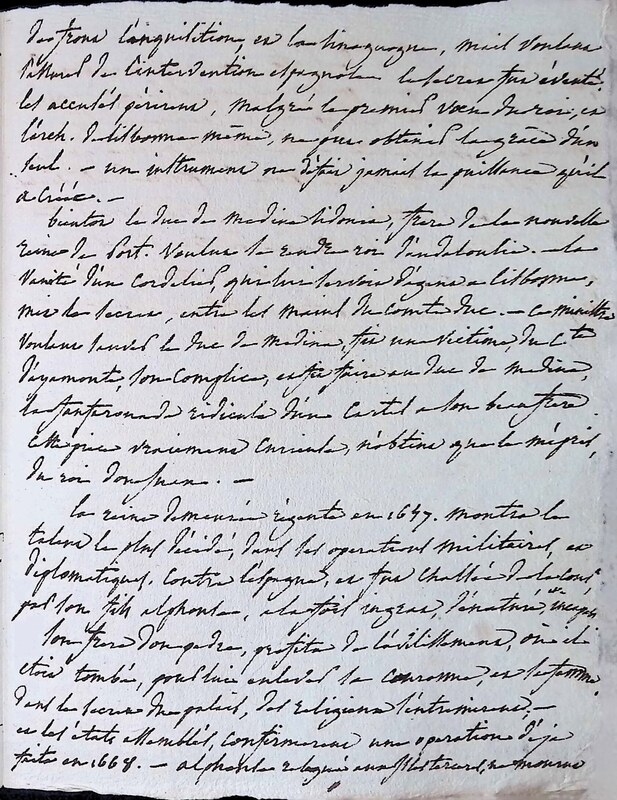 des trons l'inquisition, et la sinagogue, mais voulans
s'assurer de l'intervention espagnole le secret fut éventé.
les accusés périrent, malgré le premier vœu du roi, et
l'arch. de lisbonne même, ne put obtenir la grâce d'un
seul. — un instrument ne défait jamais la puissance qu'il
a créée. —
bientot le duc de medina sidonia, frere de la nouvelle
reine de Port. voulut se rendre roi d'andalousie. — la
vanité d'un cordelier, qui lui servoit d'agent a lisbonne,
mit le secret, entre les mains du comte duc. — ce ministre
voulant sauver le duc de medina, fit une victime, du Cte
d'ayamonte, son complice, et fit faire au duc de medina,
la fanfaronade ridicule d'un cartel a son beau frere.
cette piece vraiment curieuse, n'obtint que le mépris,
du roi don juan. —
la reine demeurée régente en 1657. montra le
talent le plus décidé, dans les operations militaires, et
diplomatiques, contre l'espagne, et fut chassée de la cour
par son fils alphonse, a la fois ingrat, dénaturé, et incapable
son frere don pedre, profita de l'avilissement, où il
etoit tombé, pour lui enlever sa couronne, et sa femme
dans le secret du palais, des religieux s'entremirent, —
et les états assemblés, confirmerent une operation déja
faite en 1668. — alphonse relegué aux , ne mourut